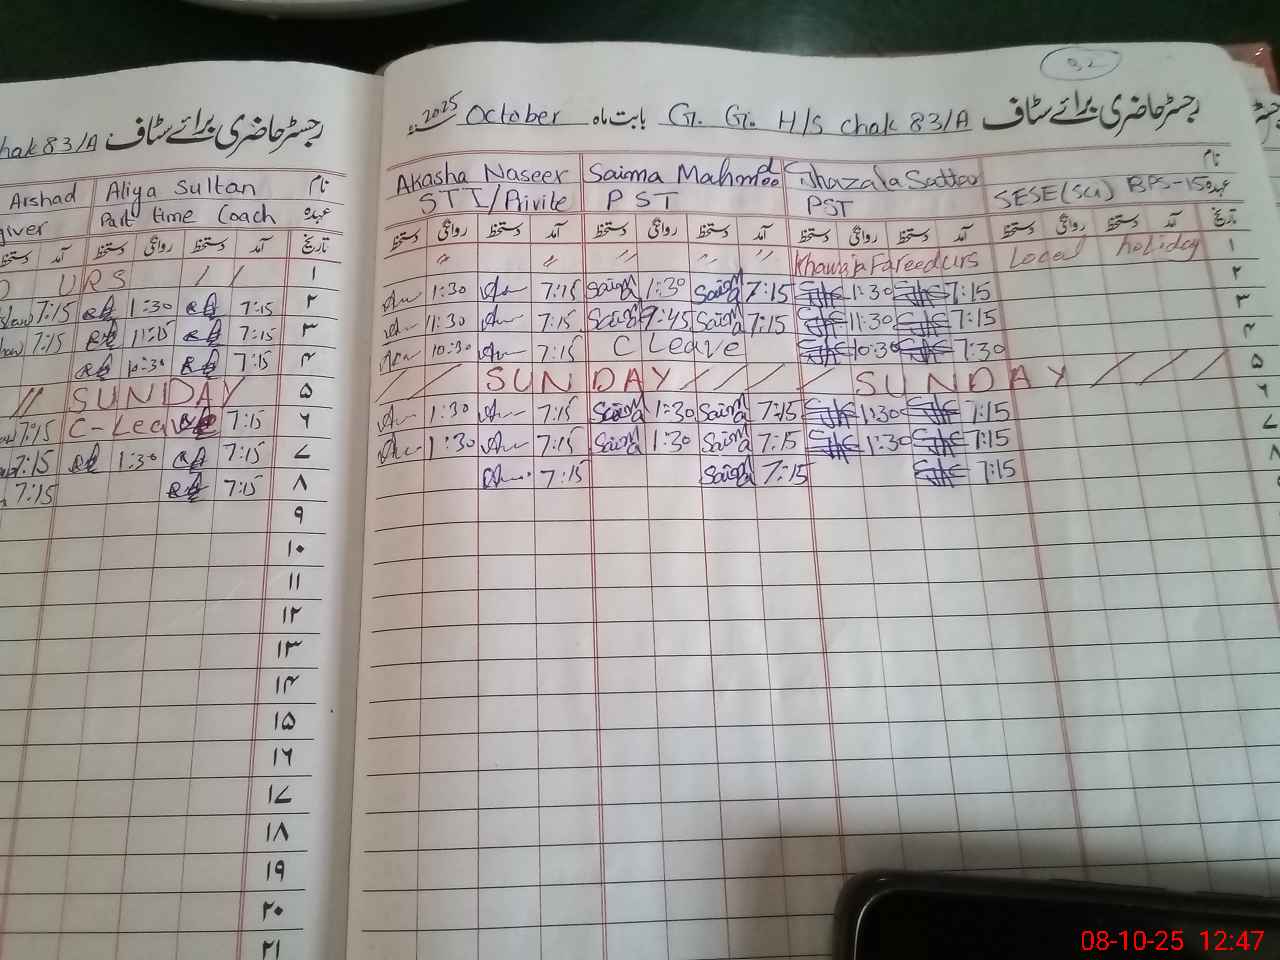 رجسٹر حاضری برائے سٹاف
hak 83/A
Arshad Aliya Sultan نام
giver Part time Coach عہدہ
دستخط آمد دستخط روانگی دستخط آمد تاریخ
URS / / ۱
7:15 1:30 7:15 ۲
7:15 11:15 7:15 ۳
10:30 7:15 ۴
// SUNDAY ۵
7:15 C-Leave 7:15 ۶
7:15 1:30 7:15 ۷
7:15 7:15 ۸
۹
۱۰
۱۱
۱۲
۱۳
۱۴
۱۵
۱۶
۱۷
۱۸
۱۹
۲۰
۲۱
92
رجسٹر حاضری برائے سٹاف G. G. H/S Chak 83/A بابت ماہ October 2025
Akasha Naseer Saima Mahmood Ghazala Sattar نام
STI/Privite PST PST SESE(Sci) BPS-15 عہدہ
دستخط روانگی دستخط آمد دستخط روانگی دستخط آمد دستخط روانگی دستخط آمد دستخط روانگی دستخط آمد تاریخ
" " " " " Khawaja Fareed urs Local holiday ۱
1:30 7:15 Saima 1:30 Saima 7:15 1:30 7:15 ۲
11:30 7:15 Saima 9:45 Saima 7:15 11:30 7:15 ۳
10:30 7:15 C Leave 10:30 7:30 ۴
/ / SUNDAY / / / / SUNDAY / / / ۵
1:30 7:15 Saima 1:30 Saima 7:15 1:30 7:15 ۶
1:30 7:15 Saima 1:30 Saima 7:15 1:30 7:15 ۷
7:15 Saima 7:15 7:15 ۸
08-10-25 12:47